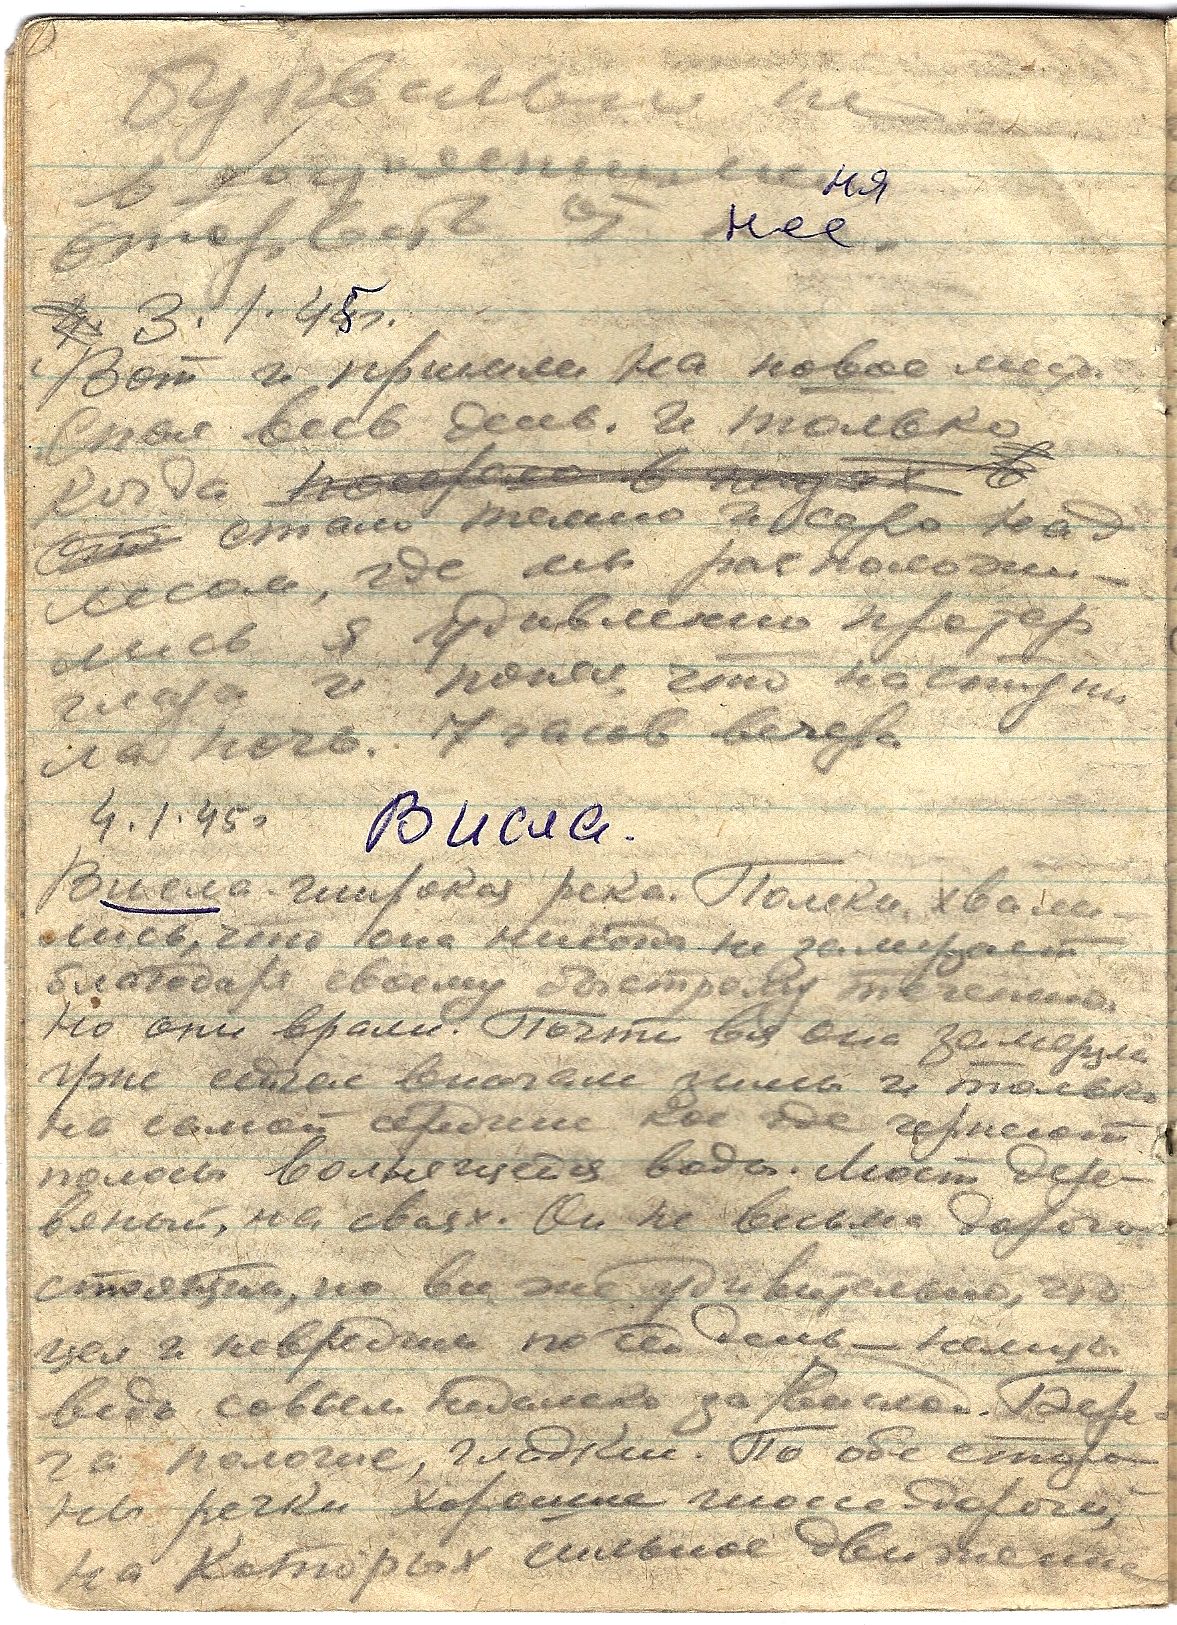 Буквально не
в
оторвать от нее
ня
3.1.45г.
Вот и пришли на новое место.
Спал весь день. И только
когда померкло в в
стало темно и серо над
лесом, где мы расположи-
лись я удивленно протер
глаза и понял, что наступи
ла ночь. 7 часов вечера
4.1.45г
Висла.
Висла широкая река. Поляки хвали-
лись, что она никогда не замерзает
благодаря своему быстрому течению.
Но они врали. Почти вся она замерзла
уже сейчас вначале зимы и только
на самой средине кое где чернеют
полосы волнящейся воды. Мост дере-
вяный, на сваях. Он не весьма дорого
стоящий, но все же удивительно, что
цел и невредим по сей день - немцы
ведь совсем недалеко за Вислой. Бере-
га пологие, гладкие. По обе сторо
ны речки хорошие шоссе дороги,
на которых сильное движение